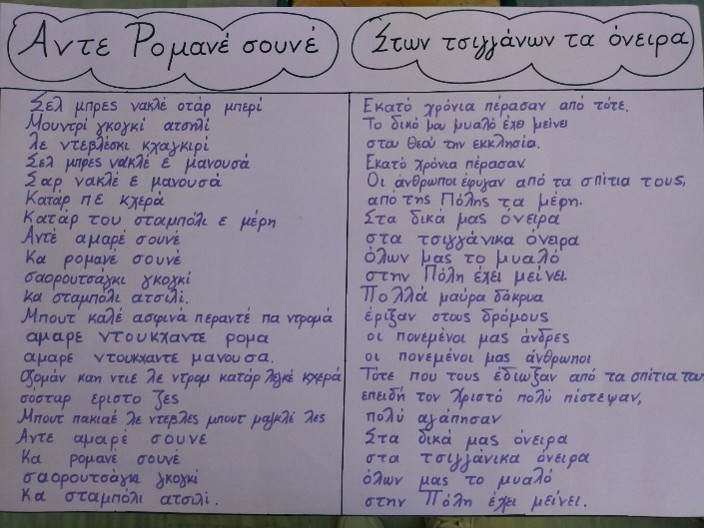 Αντε Ρομανέ σουνέ
Σελ μπρες νακλέ οτάρ μπερί
Μουντρί γκογκί ατσηλί
λε ντεβλέσκι κχαγκιρί
Σελ μπρες νακλέ ε μανουσά
Σαρ νακλέ ε μανουσά
Κατάρ πε κχερά
Κατάρ του σταμπόλι ε μέρη
Αντέ αμαρέ σουνέ
Κα ρομανέ σουνέ
σαορουτσάγκι γκογκί
κα σταμπόλι ατσιλί.
Μπουτ καλέ ασφινά περαντέ πα ντρομά
αμαρε ντουκχαντε ρομα
αμαρε ντουκχαντε μανουσα.
λε ντρομ κατάρ κχερά
σόσταρ εριστο ζες
Μπουτ πακιαέ λε ντεβλες μπουτ μαγκλέ λες
Αντε αμαρέ σουνέ
Κα ρομανέ σουνέ
σαορουτσάγκι γκογκί
Κα σταμπόλι ατσιλί.
Στων τσιγγάνων τα όνειρα
Εκατό χρόνια πέρασαν από τότε.
Το δικό μου μυαλό έχει μείνει
στου Θεού την εκκλησία.
Εκατό χρόνια πέρασαν
Οι άνθρωποι έφυγαν από τα σπίτια τους,
από της Πόλης τα μέρη.
Στα δικά μας όνειρα
στα τσιγγάνικα όνειρα
όλων μας το μυαλό
στην Πόλη έχει μείνει.
Πολλά μαύρα δάκρυα
έριξαν στους δρόμους
οι πονεμένοι μας άνδρες
οι πονεμένοι μας άνθρωποι
Τότε που τους έδιωξαν από τα σπίτια τους
επειδή τον Χριστό πολύ πίστεψαν,
πολύ αγάπησαν
Στα δικά μας όνειρα
στα τσιγγάνικα όνειρα
όλων μας το μυαλό
στην Πόλη έχει μείνει.